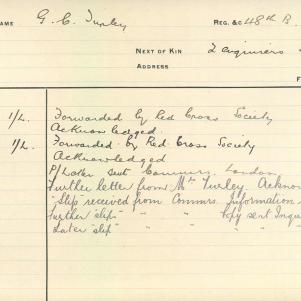 NAME G. C. Turley REG. &C 48th B.
NEXT OF KIN Enquirers
ADDRESS
F
1/L. Forwarded by Red Cross Society
Acknowledged.
1/L. Forwarded by Red Cross Society
Acknowledged
P/Later sent Commrs. London
Further letter from Mrs Turley. Acknow
"Slip" received from Commrs. Information
Further "slip" " " " Copy sent Inqui
Later "slip" " " "